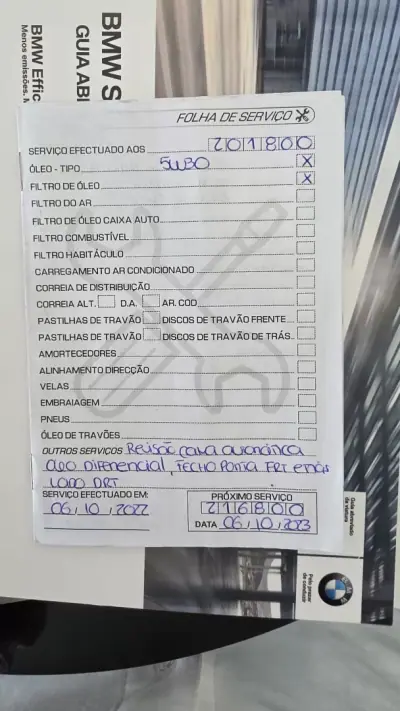 BMW S
GUIA AB
BMW Effic
Menos emissões.
FOLHA DE SERVIÇO
SERVIÇO EFECTUADO AOS 201800
ÓLEO - TIPO 5W30 X
FILTRO DE ÓLEO X
FILTRO DO AR
FILTRO DE ÓLEO CAIXA AUTO.
FILTRO COMBUSTÍVEL
FILTRO HABITÁCULO
CARREGAMENTO AR CONDICIONADO
CORREIA DE DISTRIBUIÇÃO
CORREIA ALT. D.A. AR. COD
PASTILHAS DE TRAVÃO DISCOS DE TRAVÃO FRENTE
PASTILHAS DE TRAVÃO DISCOS DE TRAVÃO DE TRÁS
AMORTECEDORES
ALINHAMENTO DIRECÇÃO
VELAS
EMBRAIAGEM
PNEUS
ÓLEO DE TRAVÕES
OUTROS SERVIÇOS Revisão caixa automática
oleo Diferencial, FECHO Porta FRT e
LADO DRT
SERVIÇO EFECTUADO EM:
06, 10, 2022
PRÓXIMO SERVIÇO
216800
DATA 06, 10, 2023
Guia abreviado
da viatura
Pelo prazer
de conduzir
BMW